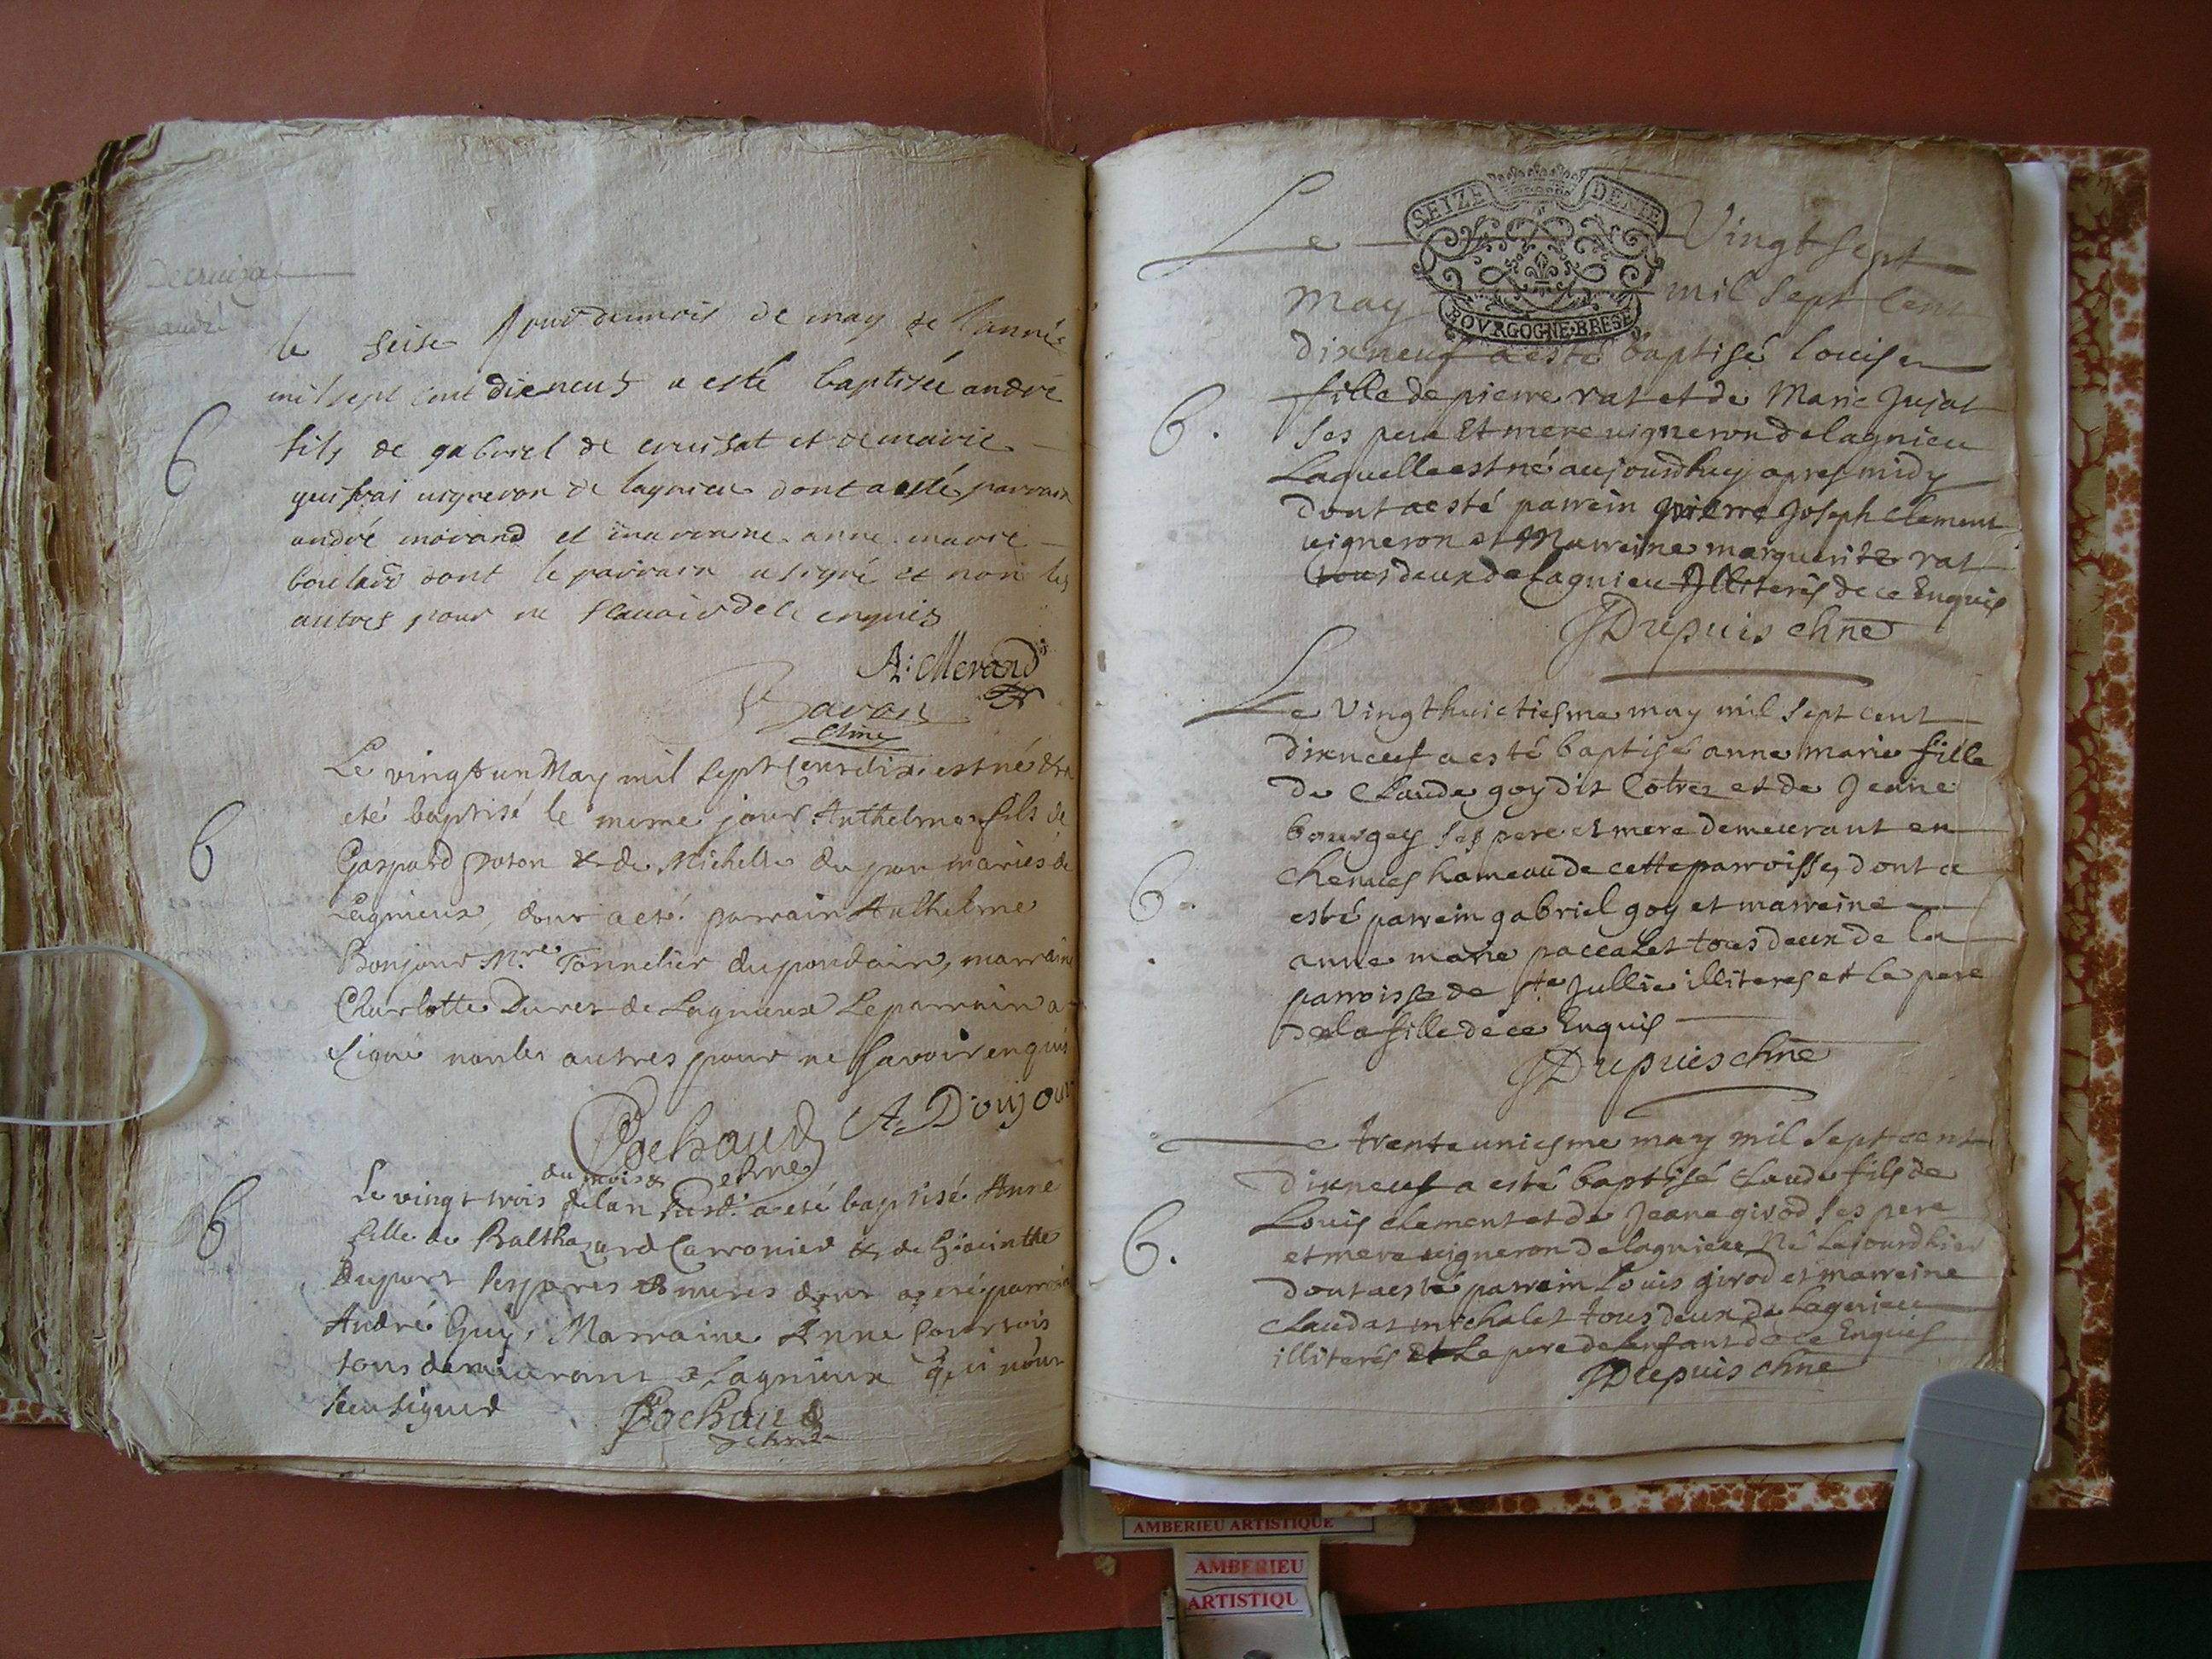 Decruisat
andré
le seise jour du mois de may de l'année
mil sept cent dixneuf a esté baptisée andré
fils de gabriel de cruisat et de marie
vigneron de lagnieu dont a esté parrain
andré morand et marenne anne marie
dont le parrain a signé et non les
autres pour ne scavoir de ce enquis
A: Morand
Savon
chne
Le vingt un May mil Sept Cent dix. est né & a
eté baptisé le meme jour Anthelme fils de
Gaspard & de Michelle du pon mariés de
Lagnieux, dont a eté parrain Anthelme
Bonjour Mre Tonnelier du pondain, marraine
Charlotte Duret de Lagnieux Le parrain a
signé non les autres pour ne savoir enquis
A. Bonjour
Pochaud
chne
du mois &
Le vingt trois de lan susd. a eté baptisé Anne
fille de Balthazard Carronier & de Hiacinthe
Duport ses peres & meres dont a eté parrain
André Guy, Marraine Anne Courtois
tous demeurant a Lagnieux qui n'ont
seu signer
Pochaud
chne
6
6
6
SEIZE DENIE
BOVRGOGNE·BRESE
Le Vingt sept
may mil sept cent
dixneuf a esté baptisé louise
fille de pierre rat et de Marie Jujat
ses pere Et mere vigneron de lagnieu
Laquelle est né aujourdhuy apres midy
dont a esté parrein pierre Joseph clement
vigneron et Marreine marguerite rat
tous deux de Lagnieu Illiterés de ce Enquis
JDupuis chne
Le Vingt huictiesme may mil sept cent
dixneuf a esté baptisé anne marie fille
de Claude goy dit Cotrez et de Jeanne
bourgey ses pere et mere demeurant en
chenues hameau de cette parroisse, dont a
esté parrein gabriel goy et marreine
anne marie paccalet tous deux de la
parroisse de Ste Jullie illiteres et le pere
de la fille de ce Enquis
JDupuis chne
Le trente uniesme may mil sept cent
dixneuf a esté baptisé Claude fils de
Louis clement et de Jeane girod ses pere
et mere vigneron de lagnieu Né Le jourdhier
dont a esté parrein Louis girod et marreine
Claudat michalet tous deux de Lagnieu
illiterés Et Le pere de Lenfant de ce Enquis
JDupuis chne
6.
6.
6.
AMBERIEU ARTISTIQUE
AMBERIEU
ARTISTIQU